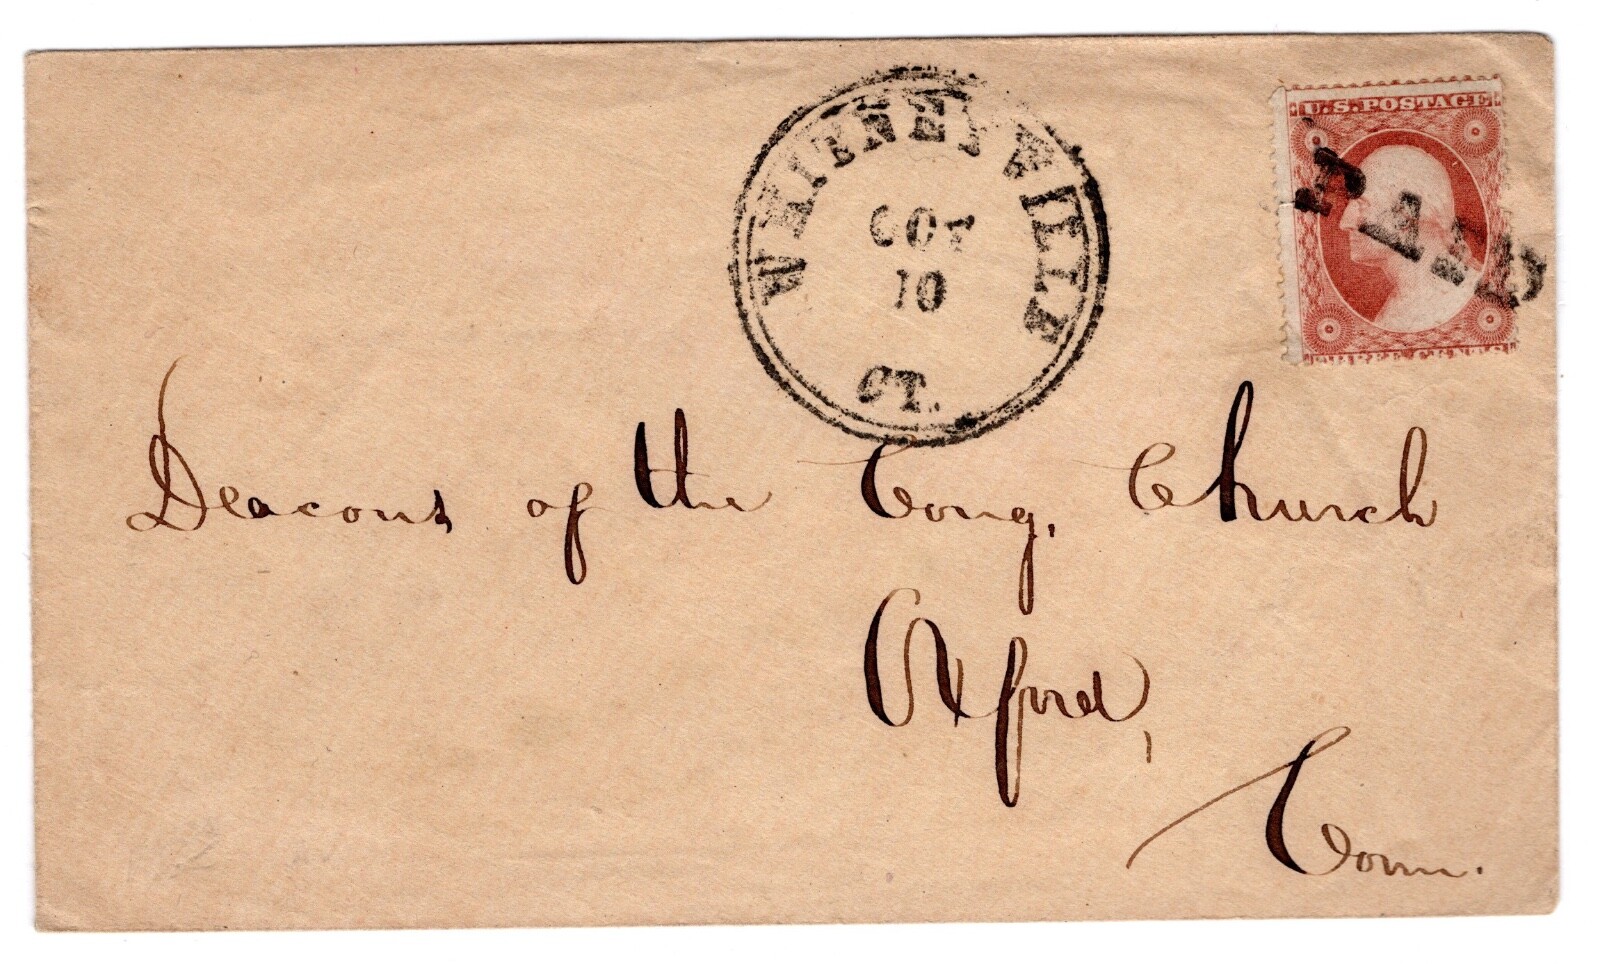 WHITNEYVILLE
OCT
10
CT.
U.S. POSTAGE
PAID
THREE CENTS
Deacons of the Cong. Church
Oxford,
Conn.